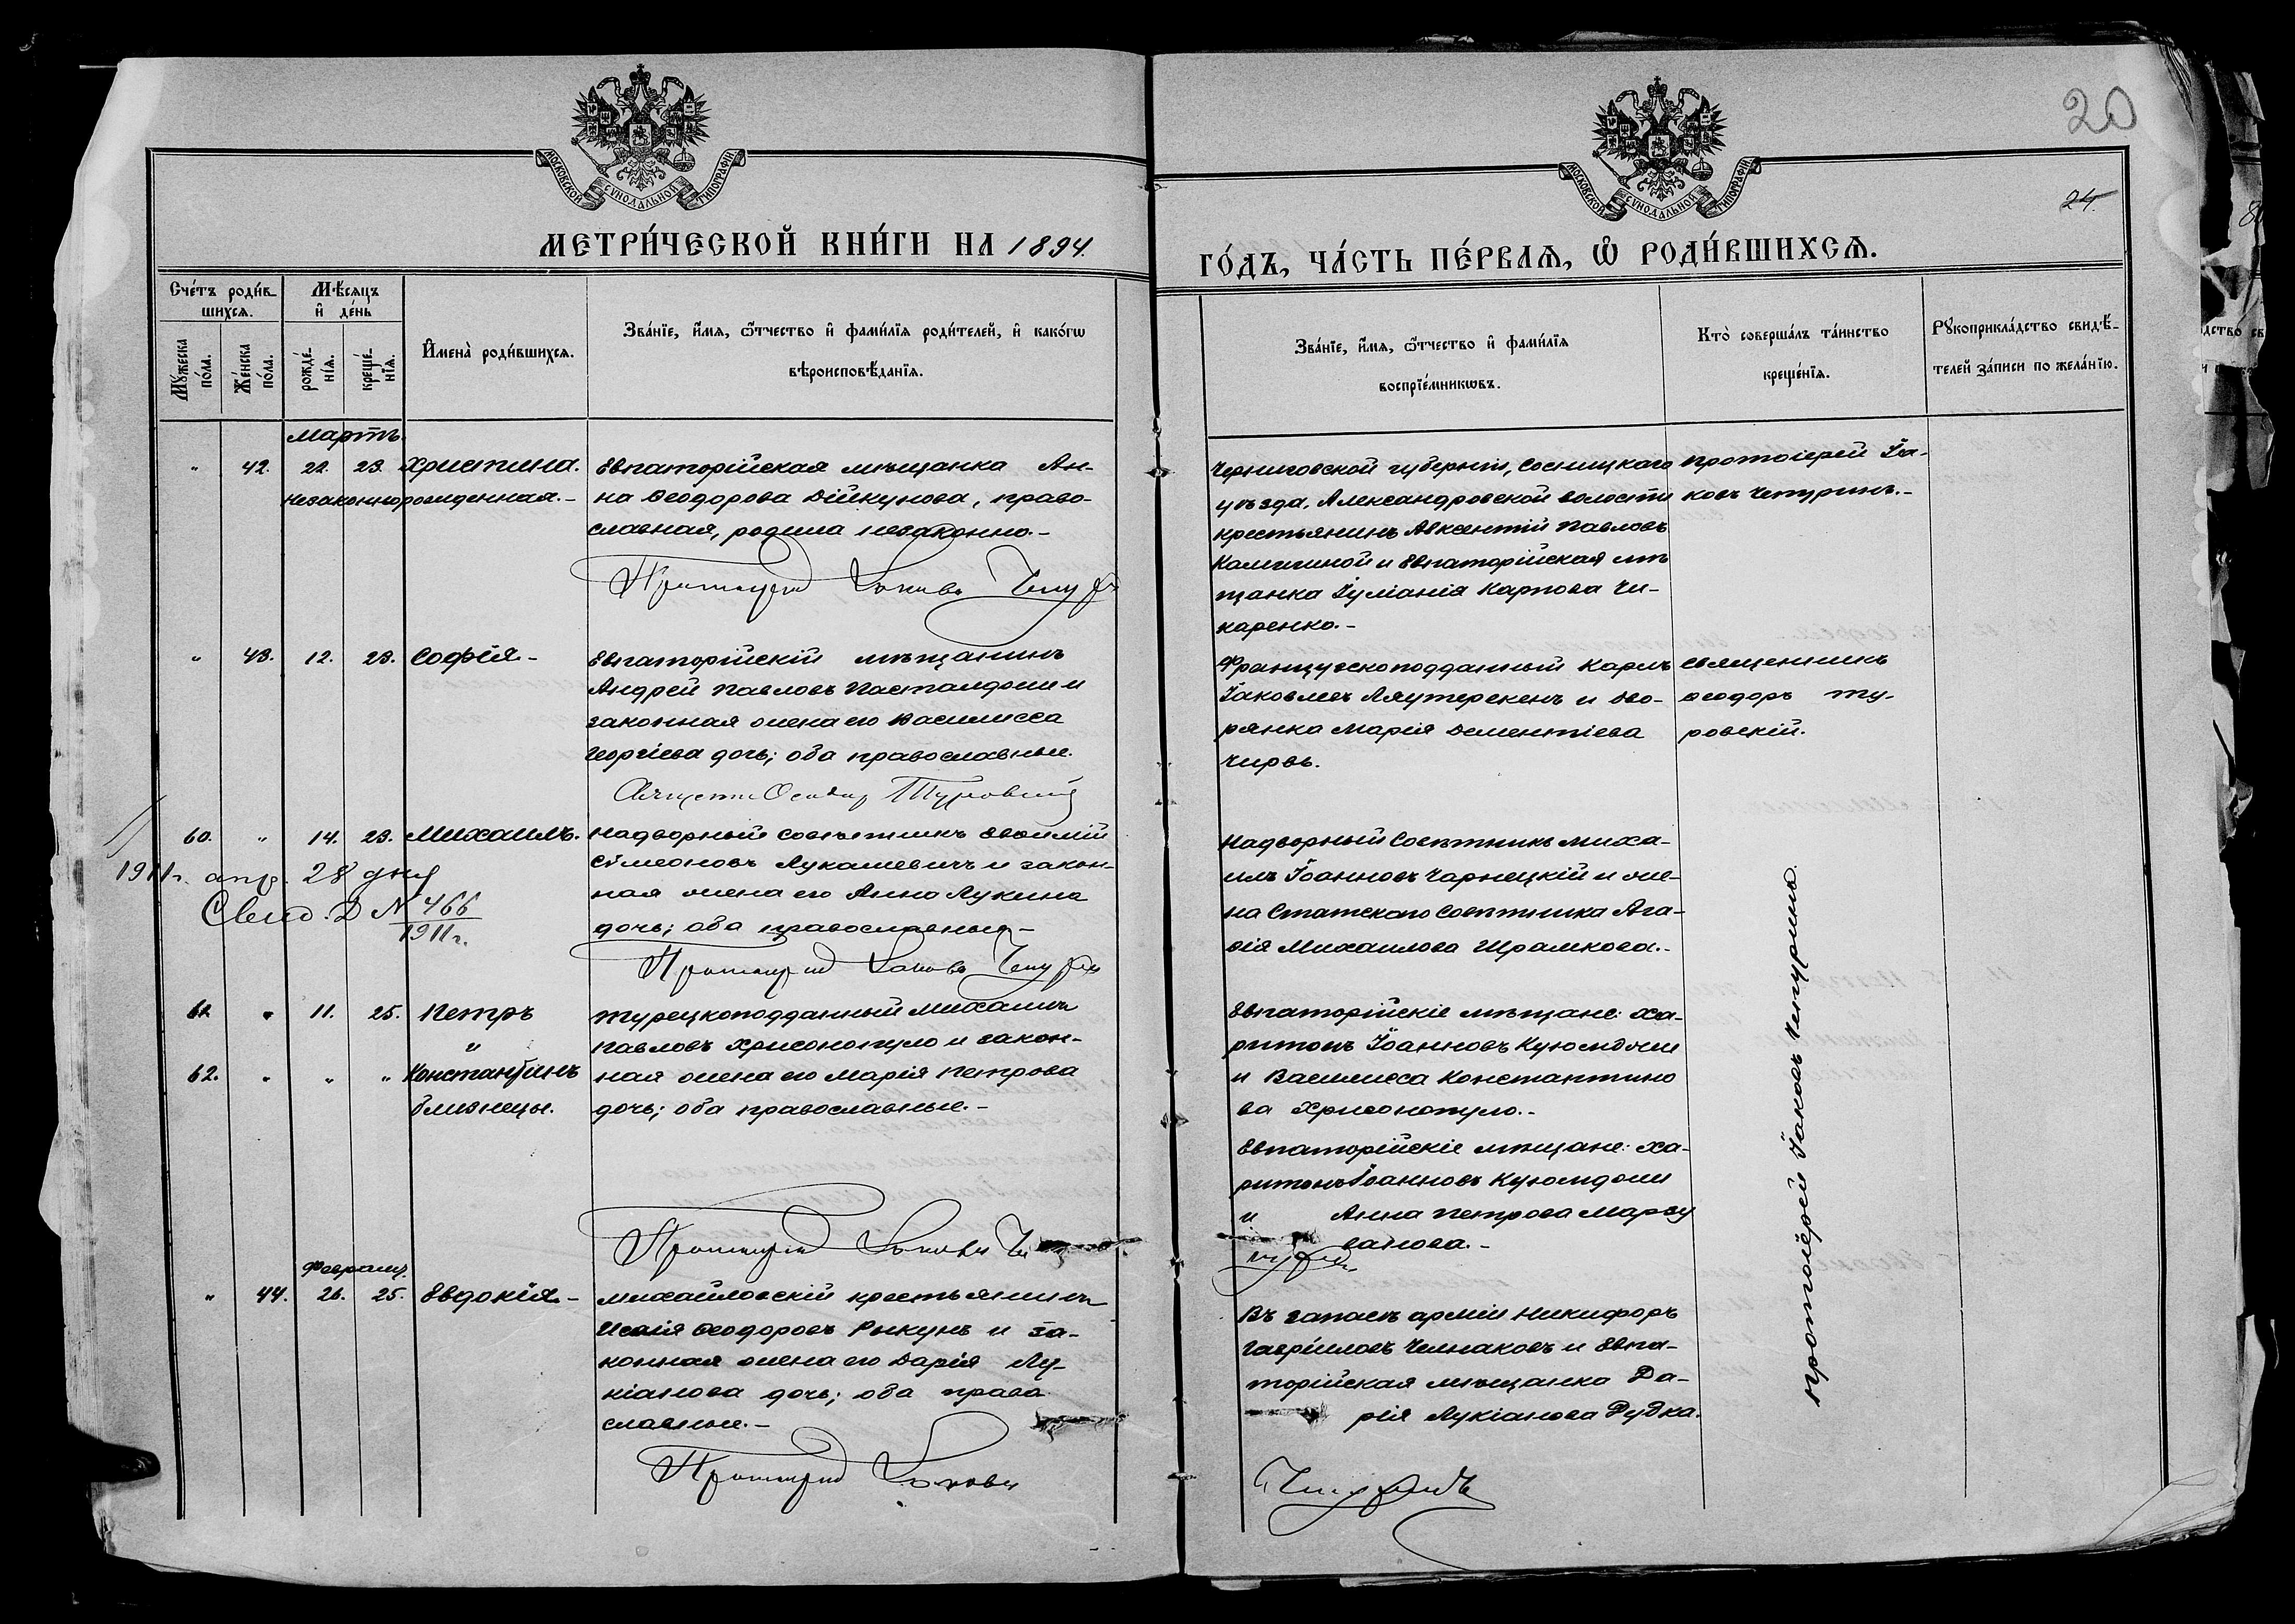 20
24.
МОСКОВСКОЙ СУНОДАЛЬНОЙ ТИПОГРАФІИ
МОСКОВСКОЙ СУНОДАЛЬНОЙ ТИПОГРАФІИ
МЕТРИ́ЧЕСКОЙ КНИ́ГИ НА 1894.
ГО́ДЪ, ЧА́СТЬ ПЕ́РВАѦ, Ѡ҆ РОДИ́ВШИХСѦ.
Сче́тъ роди́в-
шихсѧ.
Му́жеска по́ла.
Же́нска по́ла.
Мѣ́сѧцъ
и҆ де́нь
рожде́-
нїѧ.
креще́-
нїѧ.
И҆мена̀ роди́вшихсѧ.
Зва́нїе, и҆́мѧ, ѻ҆́тчество и҆ фами́лїѧ роди́телей, и҆ како́гѡ
вѣроисповѣ́данїѧ.
Зва́нїе, и҆́мѧ, ѻ҆́тчество и҆ фами́лїѧ
воспрїе́мникѡвъ.
Кто̀ соверша́лъ та́инство
креще́нїѧ.
Рꙋкоприкла́дство свидѣ́-
телей за́писи по жела́нїю.
Мартъ.
" 42. 22. 23. Христина.
Незаконнорожденная.-
Евпаторійская мѣщанка Ан-
на Ѳеодорова Дійкунова, право-
славная, родила незаконно.-
Протоіерей Іаковъ Чепур
Черниговской губерніи, Сосницкаго
уѣзда, Александровской волости
крестьянинъ Авксентій Павловъ
Калигиной и Евпаторійская мѣ
щанка Іуліанія Карпова Чи-
каренко.-
Протоіерей Іа-
ковъ Чепуринъ.-
" 43. 12. 23. Софія-
Евпаторійскій мѣщанинъ
Андрей Павловъ Пасталджи и
законная жена его Василисса
Георгіева дочь; оба православные.
Священ Ѳеодор Туровскій
Французскоподданный Карлъ
Іаковлевъ Ляутерекенъ и дво-
рянка Марія Дементіева
Чирвъ.
Священникъ
Ѳеодоръ Ту-
ровскій.
60. " 14. 23. Михаилъ.
1911 г. апр. 28 дня
Свид. Д № 466
1911 г.
Надворный Совѣтникъ Евѳимій
Сѵмеоновъ Лукашевичъ и закон-
ная жена его Анна Лукина
дочь; оба православные-
Протоіерей Іаковъ Чепурин
Надворный Совѣтникъ Миха-
илъ Іоанновъ Чарнецкій и же-
на Статскаго Совѣтника Ага-
ѳія Михаилова Шрамкова.-
61. " 11. 25. Петръ
и
62. " " " Константинъ
близнецы.
Турецкоподданный Михаилъ
Павловъ Хрисонопуло и закон-
ная жена его Марія Петрова
дочь; оба православные.-
Протоіерей Іаковъ Че
Евпаторійскіе мѣщане: Ха-
ритонъ Іоанновъ Куюмджи
и Василисса Константино
ва Хрисонопуло.-
Евпаторійскіе мѣщане: Ха-
ритонъ Іоанновъ Куюмджи
и Анна Петрова Марзу
ванова.-
пурин
Протоіерей Іаковъ Чепуринъ.
Февраль.
" 44. 26. 25. Евдокія.-
Михайловскій крестьянинъ
Исаія Ѳеодоровъ Рыкунъ и за-
конная жена его Дарія Лу-
кіанова дочь; оба право
славные.-
Протоіерей Іаковъ
Въ запасѣ арміи Никифоръ
Гавріиловъ Челнаковъ и Евпа-
торійская мѣщанка Да-
рія Лукіанова Дудка.
Чепуринъ